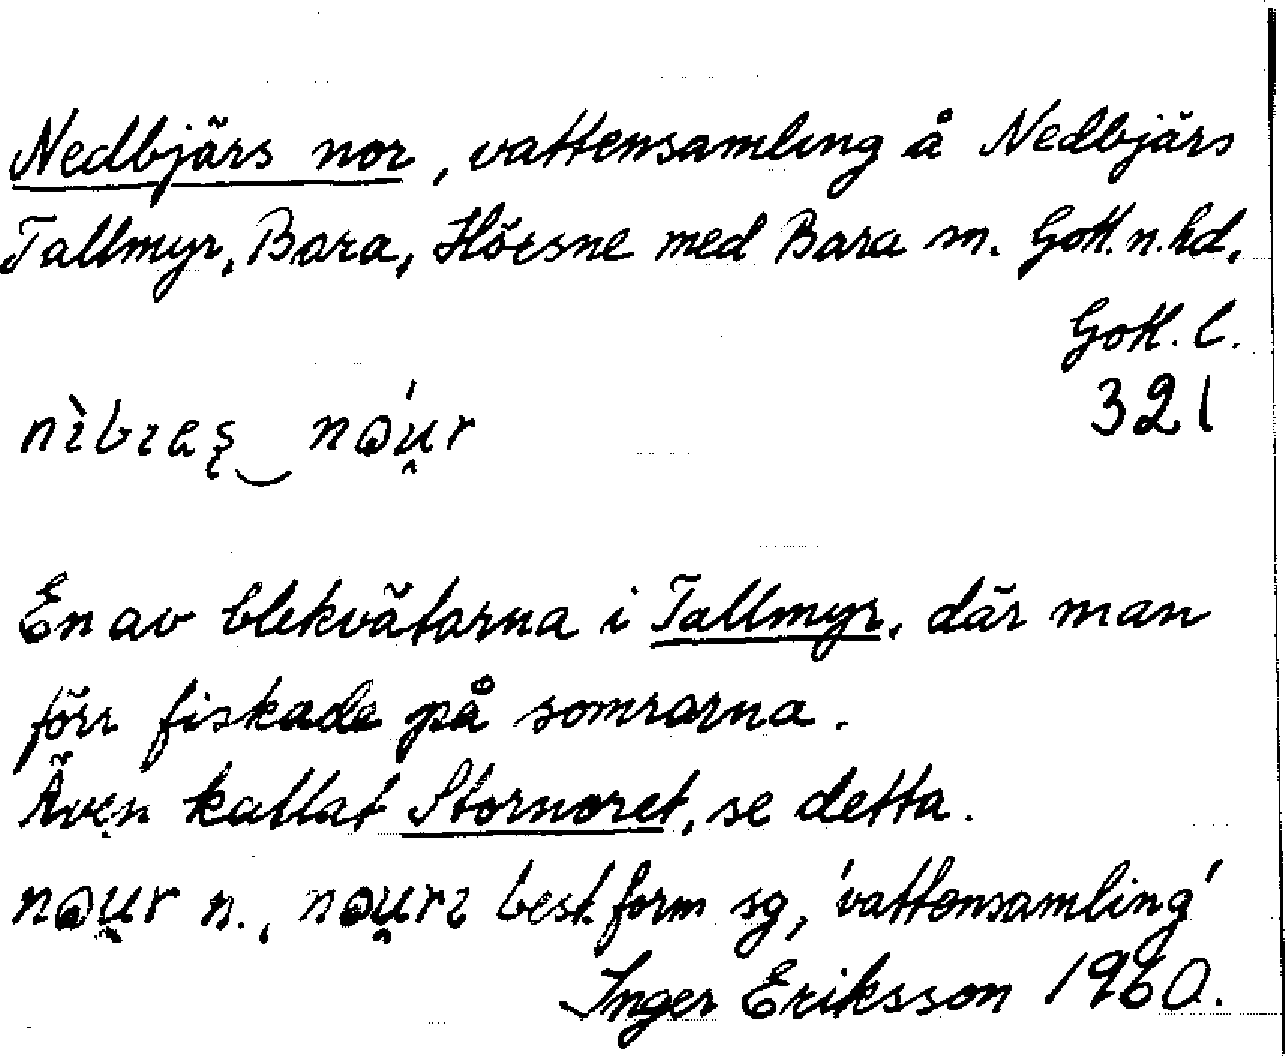 Nedbjärs nor, vattensamling å Nedbjärs
Tallmyr, Bara, Hörsne med Bara sn. Gotl. n. hd,
Gotl. l.
321
En av blekvätarna i Tallmyr, där man
förr fiskade på somrarna.
Även kallat Stornoret, se detta.
n., best. form sg, 'vattensamling'
Inger Eriksson 1960.